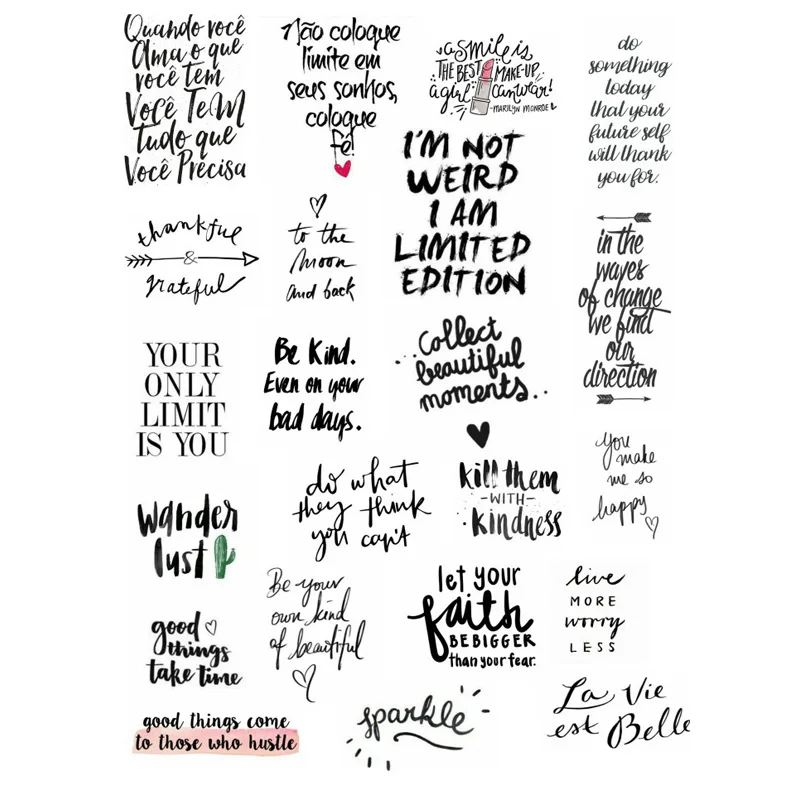 Quando você
Ama o que
você tem
Você TeM
Tudo que
Você Precisa
Não coloque
limite em
seus sonhos,
coloque
fé!
a smile is
THE BEST MAKE-UP
a girl can wear!
-MARILYN MONROE
do
something
today
that your
future self
will thank
you for.
I'M NOT
WEIRD
I AM
LIMITED
EDITION
thankful
&
grateful
to the
Moon
and back
in the
waves
of change
we find
our
direction
YOUR
ONLY
LIMIT
IS YOU
Be Kind.
Even on your
bad days.
..collect
beautiful
moments..
do what
they think
you can't
kill them
-WITH-
kindness
you
make
me so
happy
wander
lust
Be your
own kind
of beautiful
let your
faith
BE BIGGER
than your fear.
live
MORE
worry
LESS
good
things
take time
good things come
to those who hustle
sparkle
La Vie
est Belle